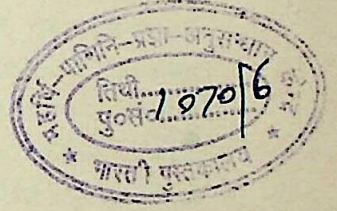 महर्षि-पाणिनि-प्रज्ञा-अनुसन्धान
तिथी..........
पु०सं० 1070/6
* भारती पुस्तकालय *